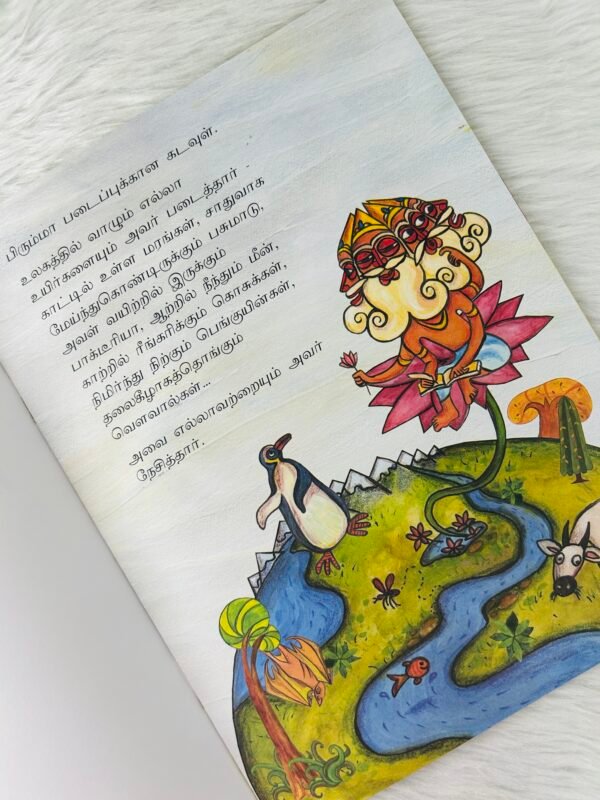 பிரும்மா படைப்புக்கான கடவுள்.
உலகத்தில் வாழும் எல்லா
உயிர்களையும் அவர் படைத்தார் -
காட்டில் உள்ள மரங்கள், சாதுவாக
மேய்ந்துகொண்டிருக்கும் பசுமாடு,
அவள் வயிற்றில் இருக்கும்
பாக்டீரியா, ஆற்றில் நீந்தும் மீன்,
காற்றில் ரீங்கரிக்கும் கொசுக்கள்,
நிமிர்ந்து நிற்கும் பெங்குயின்கள்,
தலைகீழாகத்தொங்கும்
வௌவால்கள்...
அவை எல்லாவற்றையும் அவர்
நேசித்தார்.